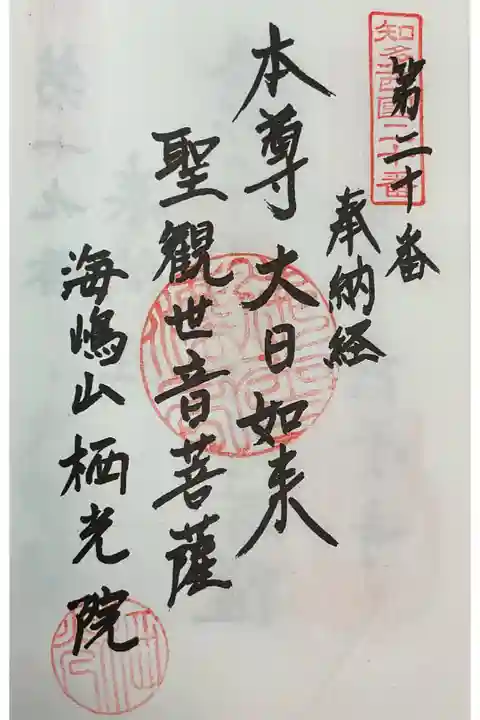 知多四国二十番
第二十番
奉納経
本尊大日如来
聖観世音菩薩
海嶋山栖光院